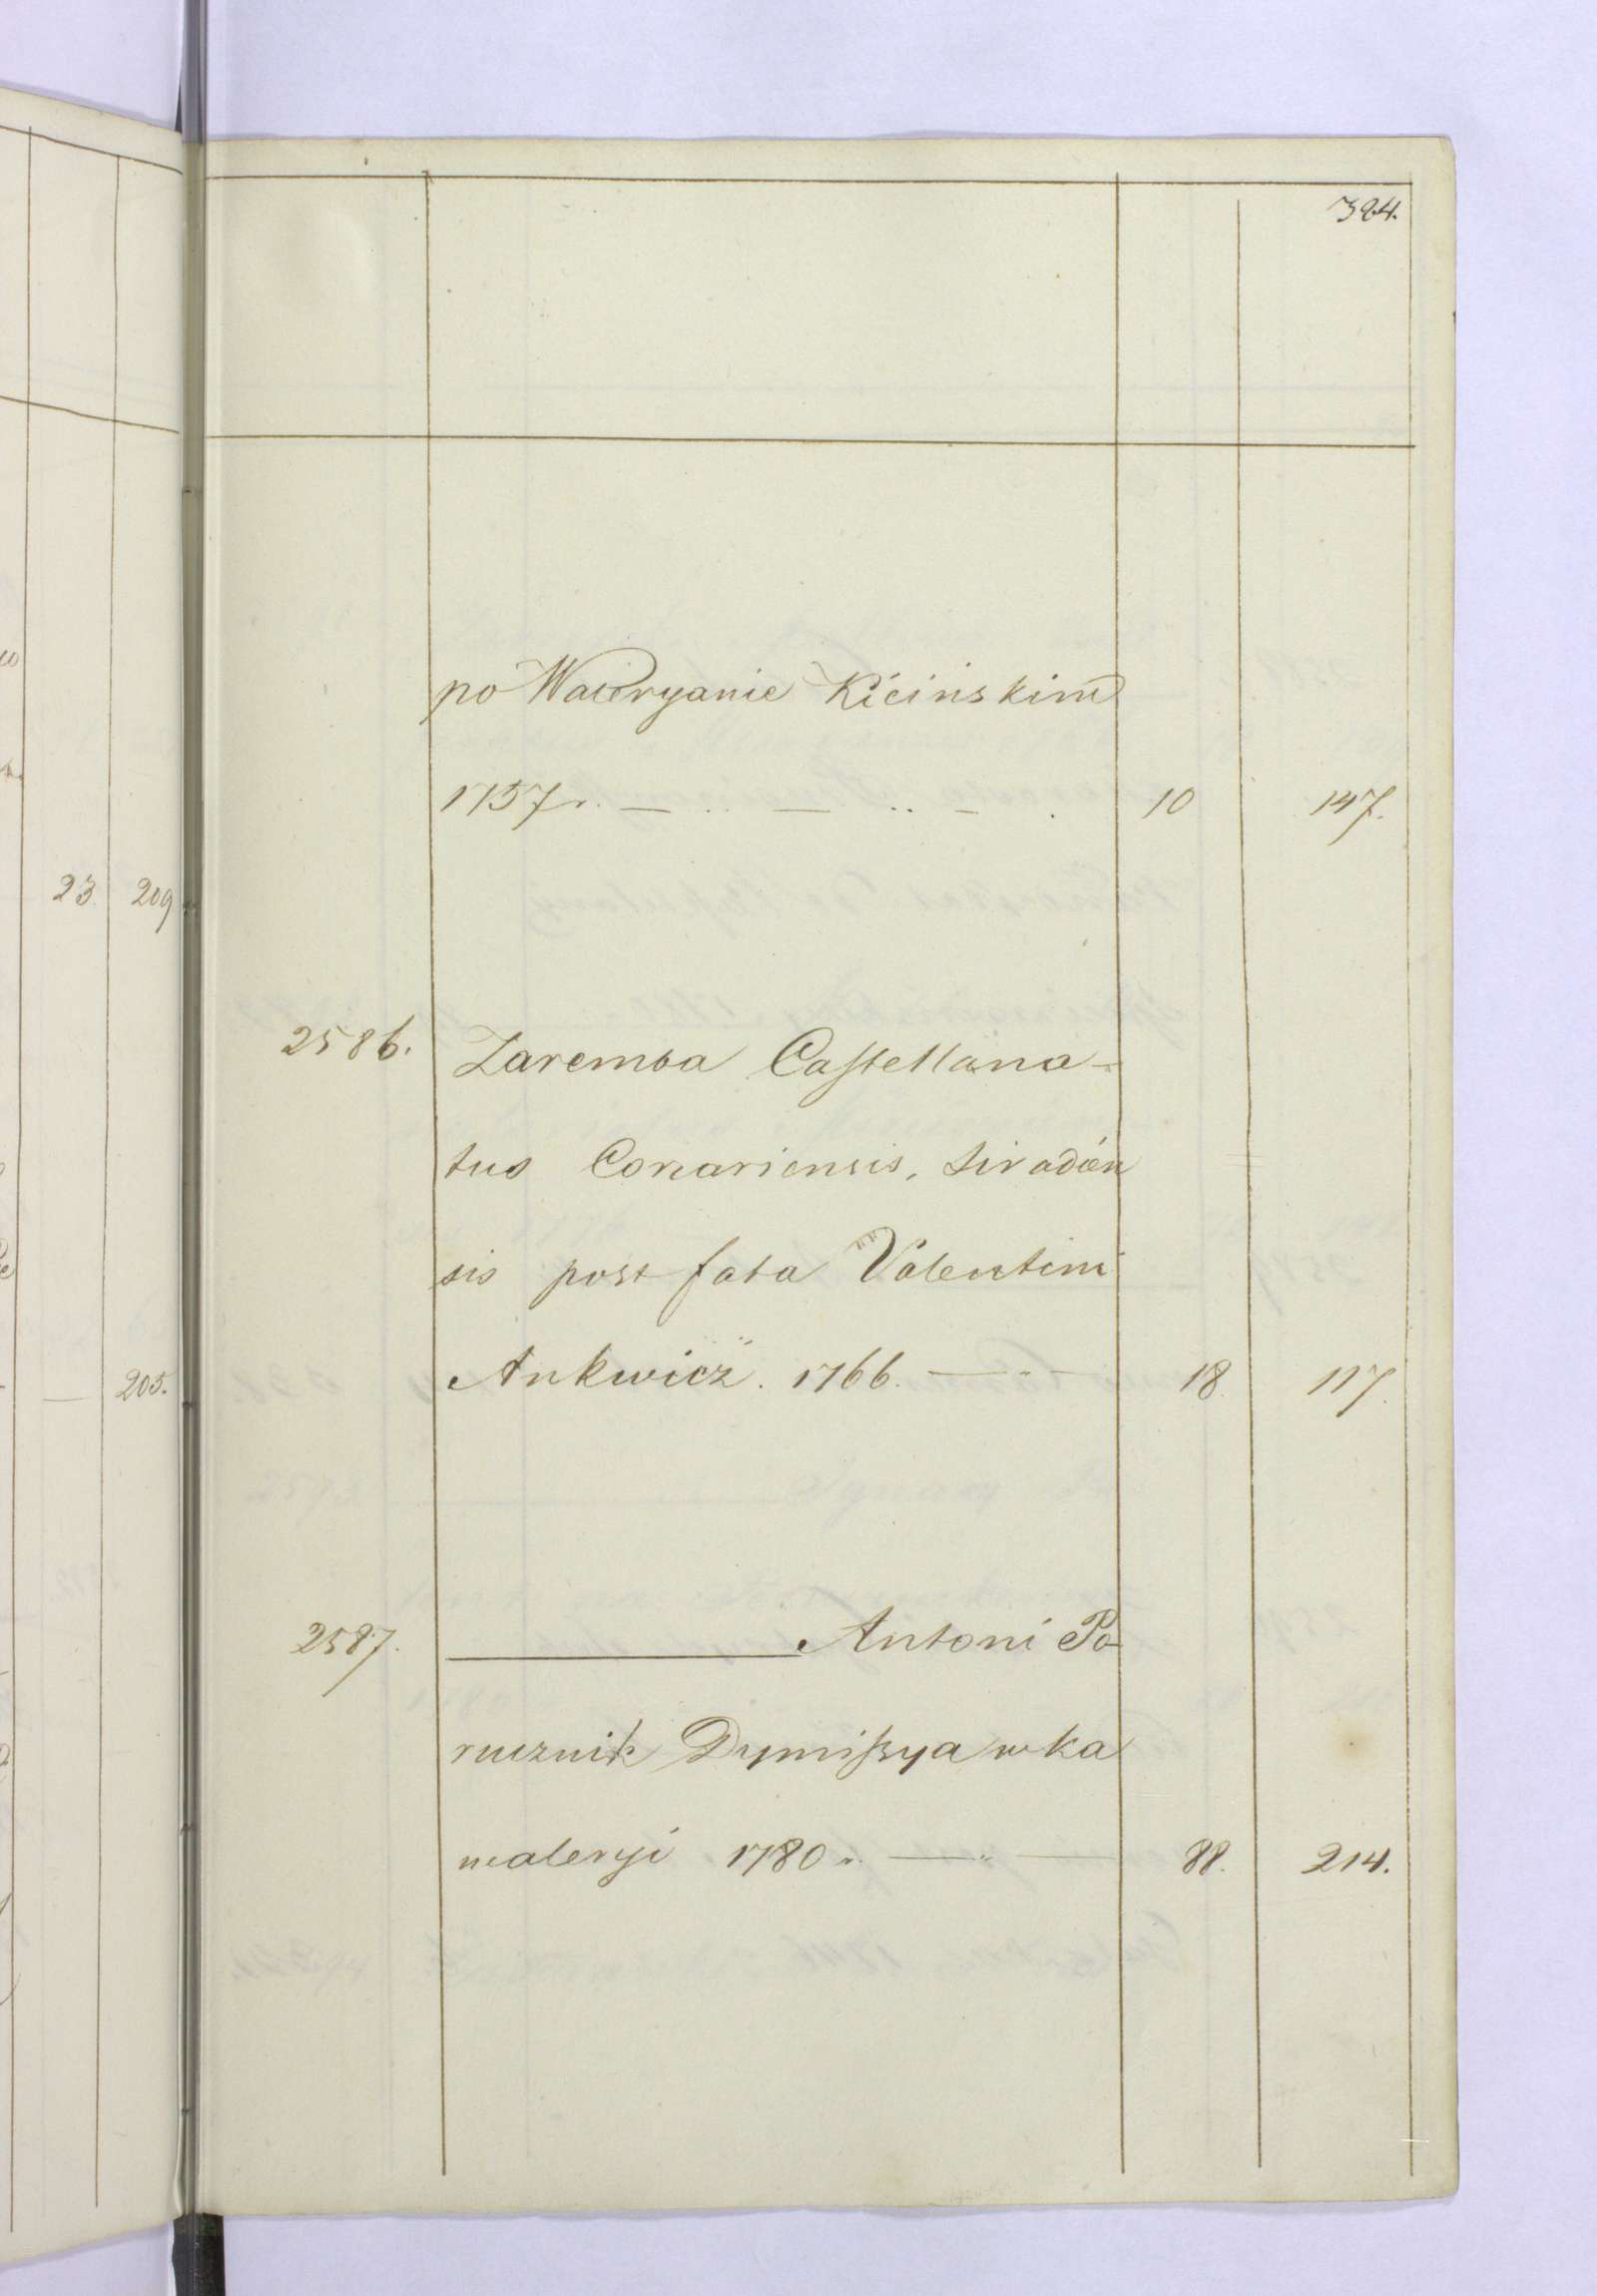 324.
po Waleryanie Kicinskim
1757 r. — .. — .. — . 10 147.
23 209
2586. Zaremba Castellana-
tus Conariensis, Siradien
sis post fata Valentini
Ankwicz. 1766. — " — 18. 117.
— 205.
2587. ———— Antoni Po
rucznik Dymissya w ka
waleryi 1780 r. — " — 88. 214.